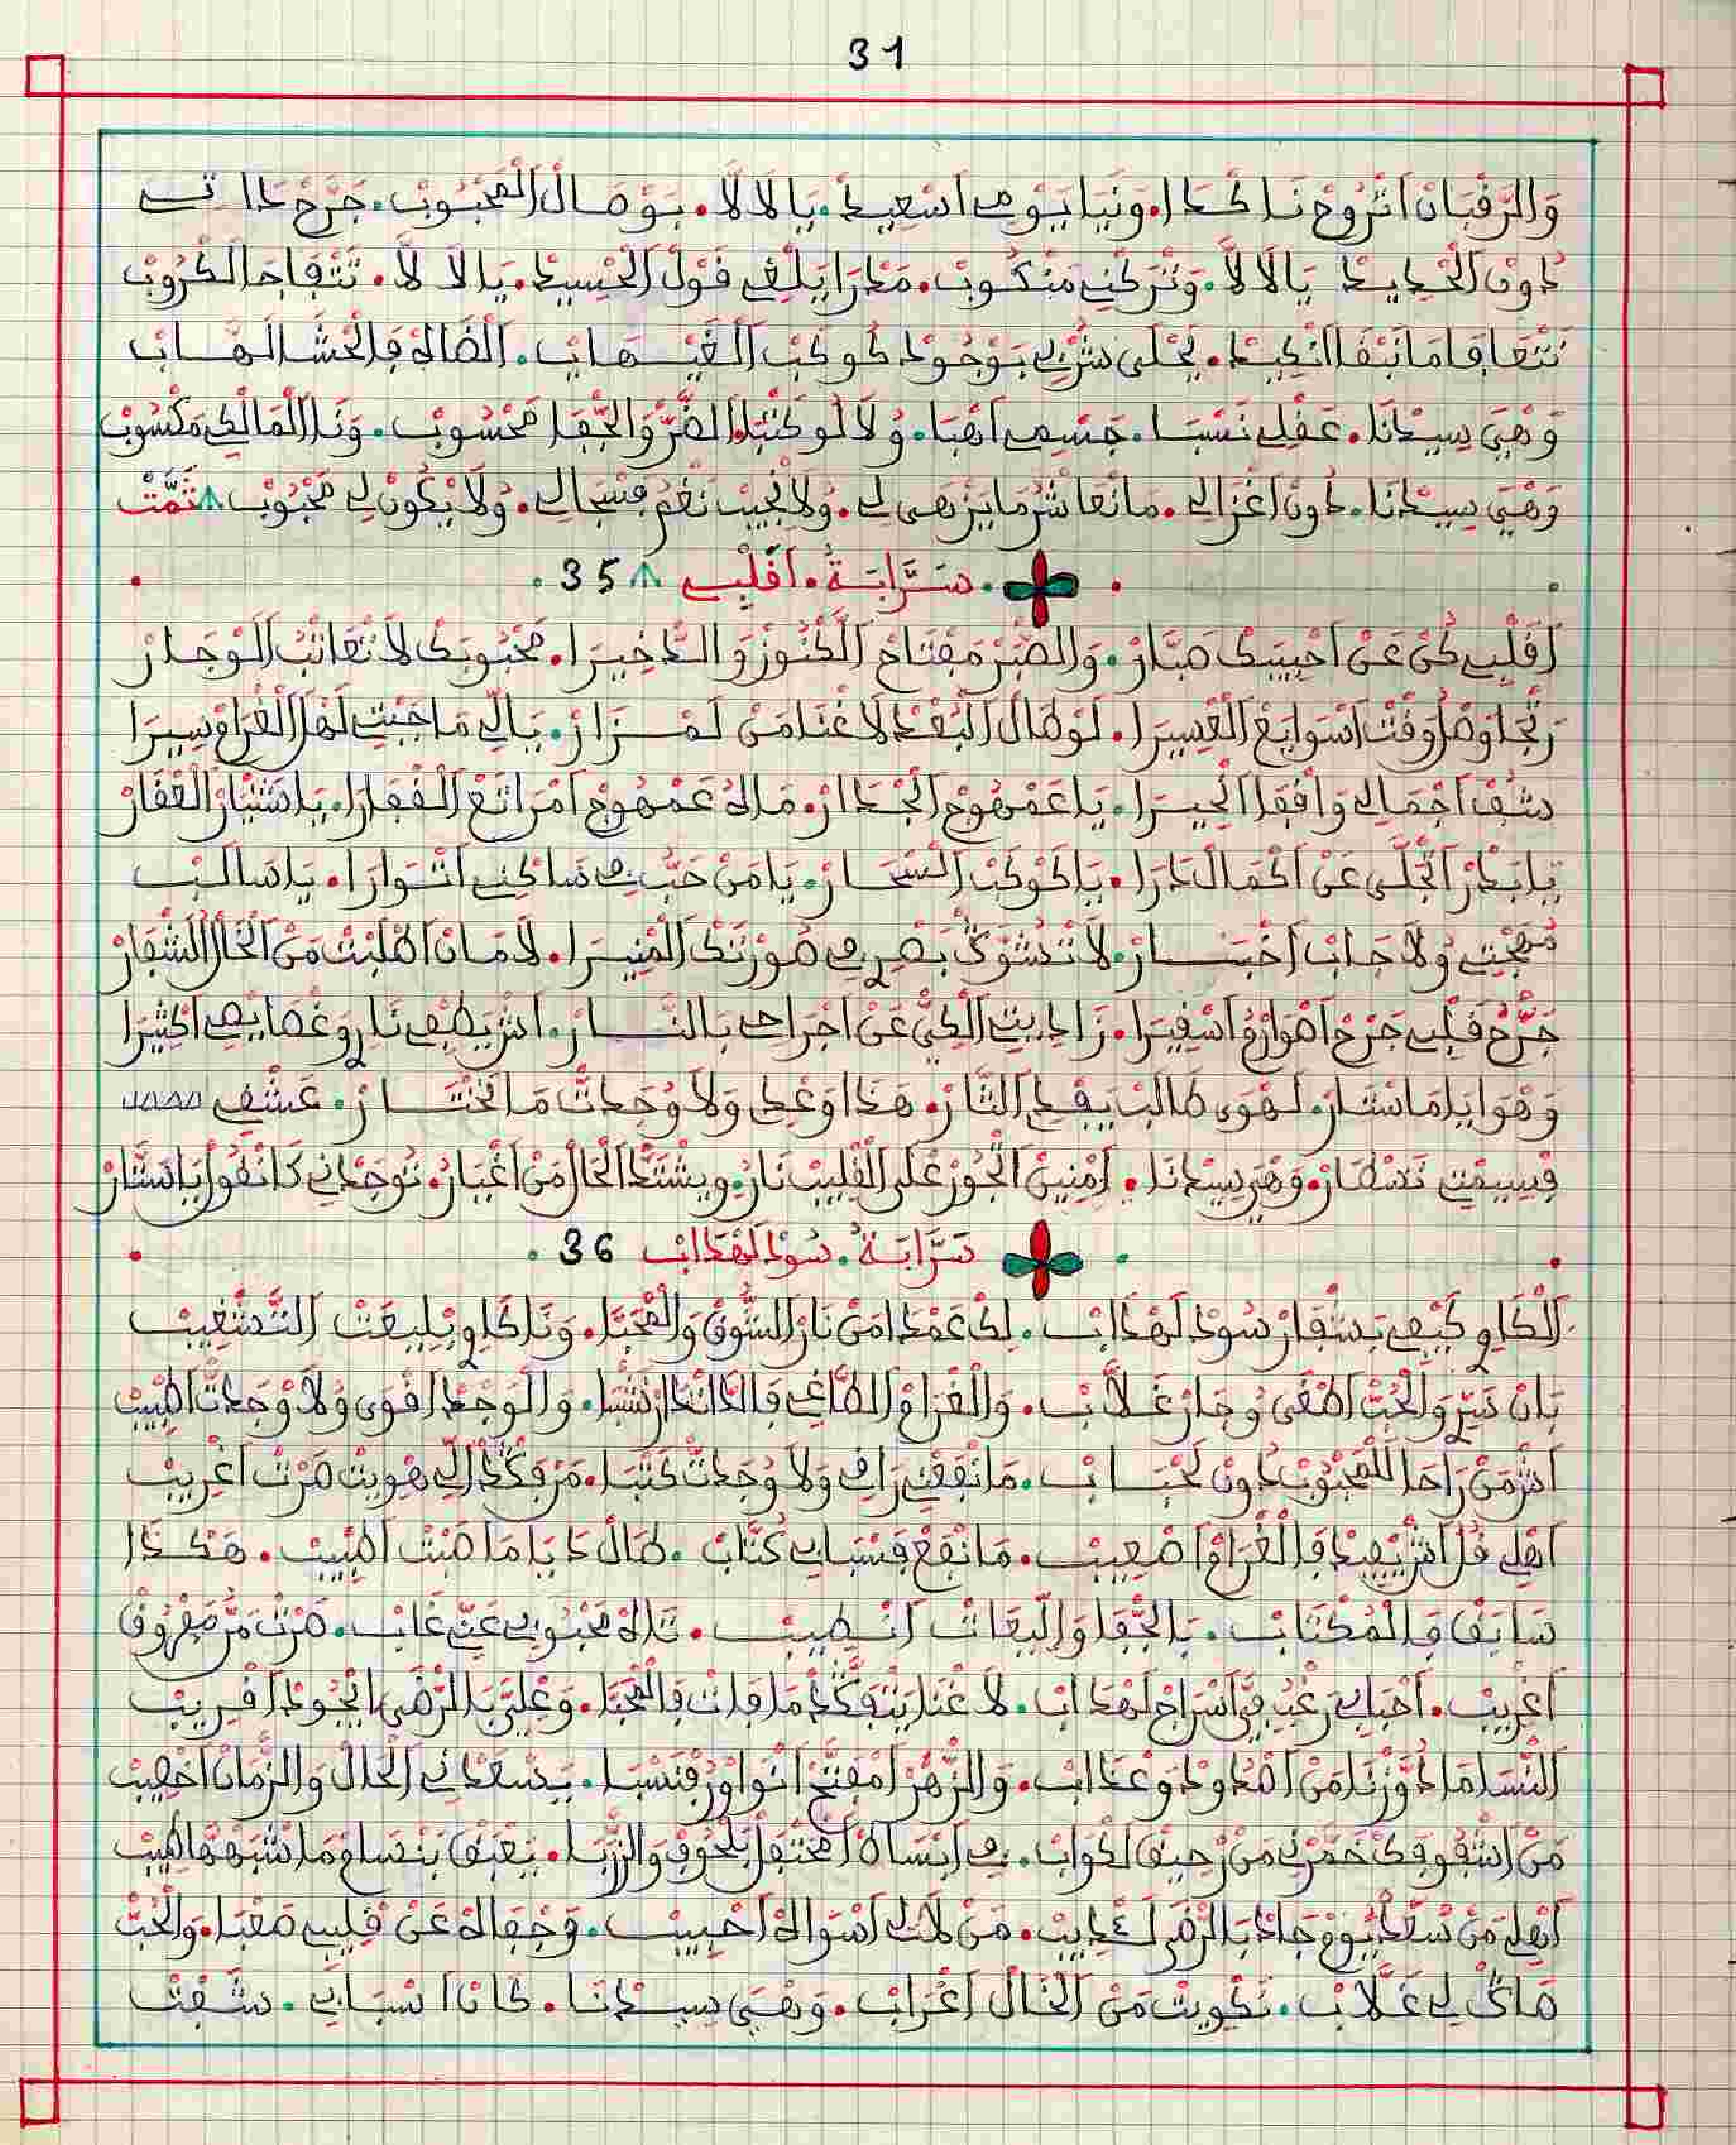 31
وَالرَّقْبَانْ اتْرُوحْ نَاكْدَا. وَنْيَا يَوْمِي اسْعِيدْ. يَا لَا لَا. بَوْصَالْ الْمَحْبُوبْ. جَرْحْ دَاتِي
دُونْ الْحْدِيدْ يَا لَا لَا. وَتْرَكْنِي مَنْكُوبْ. مَدْرَا يَلْغِي قَوْلْ الْحْسِيدْ. يَا لَا لَا. تَتْفَاجَا الْكْرُوبْ
نَتْعَافَا مَا نَبْقَا انْكِيدْ. يَحْلَى شُرْبِي بَوْجُودْ كُوكَبْ الْغَيْهَابْ. الْضَالَهْ فَالْحْشَا لْهَابْ
وَهْيَ سِيدْنَا. عَقْلِي نَسْبَا. جَسْمِي افْبَا. وُلَا لُو كَتْبَا. الضُّرّْ وَالْجْفَا مَحْسُوبْ. وَنَا الْمَالْكِي مَكْسُوبْ
وَهْيَ سِيدْنَا. دُونْ اغْزَالِي. مَا نْعَاشَرْ مَا يَزْهَى لِي. وُلَا نْجِيبْ نَغْمْ فِسْجَالِي. وُلَا يْكُونْ لِي مَحْبُوبْ تَمَّتْ
سَرَّابَةُ. اقَلْبِي 35
اقَلْبِي كُنْ عَنْ احْبِيبَكْ صَبَّارْ. وَالصّْبَرْ مَفْتَاحْ الْكْنُوزْ وَالدّْخِيرَا. مَحْبُوبَكْ لَا تْعَاتْبُ الَوْ جَارْ
رَتْجَا وَصْلُ وَقْتْ اسْوَايَعْ الْعْسِيرَا. لَوْ طَالْ الْبُعْدْ لَا غْنَا مَنْ لَمْزَارْ. يَالِّي مَا جَبْتِي لَهْلْ الْغْرَامْ سِيرَا
شُفْ اجْمَالِي وَافْقَدْ الْحِيرَا. يَا عَمْهُوجْ الْخْدَارْ. مَالَهْ عَمْهُوجْ امْرَاتَعْ الْقْفَارَا. يَا شَتْيَارْ الْقْفَارْ
يَا بَدْرْ اتْجَلَّى عَنْ اكْمَالْ دَارَا. يَا كَوْكَبْ السْحَارْ. يَا مَنْ حَبُّ بِي سَاكْنِي اتْوَارَا. يَا سَالَبْ
مُهْجْتِي وُلَا جَابْ اخْبَارْ. لَا تَشْوَقْ بَصْرِي صُورْتَكْ الْمْنِيرَا. لَامَانْ اطْلَبْتْ مَنْ الْحَالْ الشْفَارْ
جَرَّحْ قَلْبِي جَرْحْ اهْوَارُهْ اسْفِيرَا. زَادِيتْ الْكَيّْ عَنْ اجْرَاحِي بَالنَّارْ. اشْ يَطْفِي نَارُ وَغْصَايْصِي اكْثِيرَا
وَهْوَايَا مَا سْتَارْ. لَهْوَى طَالَبْ يَقْدْ التَّارْ. هَذَا وَعْدِي وَلَا وْجَدْتْ مَا نَخْتَارْ. عَشْقِي
فِسِيمْتِي تَسْطَارْ. وَهْيَ سِيدْنَا. امْنِينْ اتْجُورْ عْلَى الْقْلِيبْ نَارُ. وِيشْتَدّْ الْحَالْ مَنْ اغْيَارُ. تُوجَدْنِي كَانْقُولْ يَا سَتَّارْ
سَرَّابَةُ. سُودْ لَهْدَابْ 36
الْكَاوِي كَيْفِي بَشْفَارْ سُودْ لَهْدَابْ. لَكْ عَمْدَا مَنْ نَارْ الشُّوقْ وَالْمْحَبَّا. وَنَا كَاوِي بْلِيعَتْ التَّشْغِيبْ
بَانْ سَرِّي وَالْحُبّْ اطْغَى وُجَارْ غَلَّابْ. وَالْغْرَامْ الطَّاغِي فَالدَّاتْ دَارْ نَشْبَا. وَالْوَجْدْ اقْوَى وَلَا وْجَدْتْ اطْبِيبْ
اشْ مَنْ رَاحَا لَلْمَحْبُوبْ دُونْ لَحْبَابْ. مَا نْفَعْنِي رَاقِي وَلَا وْجَدْتْ كَتْبَا. مَنْ فَگْدْ الِّي هْوِيتْ صَرْتْ اغْرِيبْ
اهْلِي قُلْ اشْ يْفِيدْ فَالْغْرَامْ اصْعِيبْ. مَا نْفَعْ فَسْبَابِي كُتَّابْ. طَالْ دَايَا مَا صَبْتْ اطْبِيبْ. هَكْدَا
سَابَقْ فَالْمُكْتَابْ. بَالْجْفَا وَالِّيعَاتْ انْطِيبْ. تَاهْ مَحْبُوبِي عَنِّي غَابْ. صَرْتْ مَنْ مَفْرُوقْ
اغْرِيبْ. احْبَابِي رَغْبُ فِيَّ اسْرَاجْ لَهْدَابْ. لَا غْنَا يَتْفَكَّدْ مَا فَاتْ فَالْمْحَبَّا. وَعْلِيَّ بَالرّْضَى ايْجُودْ اقْرِيبْ
النّْسَا مَا دَوَّزْنَا مَنْ اصْدُودْ وَعْدَابْ. وَالزّْهَرْ امْفَتَّحْ انْوَاوْرُ فَنْسْبَا. يَسْعَدْنِي الْحَالْ وَالزّْمَانْ اخْصِيبْ
مَنْ اشْقُوفَكْ خَمْرِي مَنْ رْحِيقْ لَكْوَابْ. فِي ابْسَاطْ امْحَتْفَلْ بَلْحُوفْ وَالزّْرْبَا. يَعْبَقْ بَنْسَامْ مَا شْبَهْهَا طِيبْ
اهْلِي مَنْ سَعْدِي يُومْ جَادْ بَالرّْضَى لَعْدِيبْ. مَنْ لَا لِي اسْوَاهْ احْبِيبْ. وَجْفَاهْ عَنْ قَلْبِي صَعْبَا. وَالْحُبّْ
صَالْ لِي غَلَّابْ. نَكْوِيتْ مَنْ الْخَالْ اغْرَابْ. وَهْيَ سِيدْنَا. كَانْ اسْبَابِي. شَفْتْ